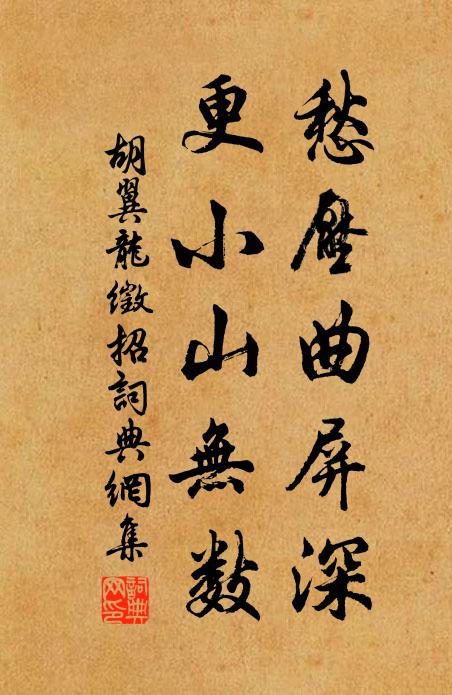 愁壓曲屏深
更小山無数
胡翼龍徵招詞典網集
詞典網印